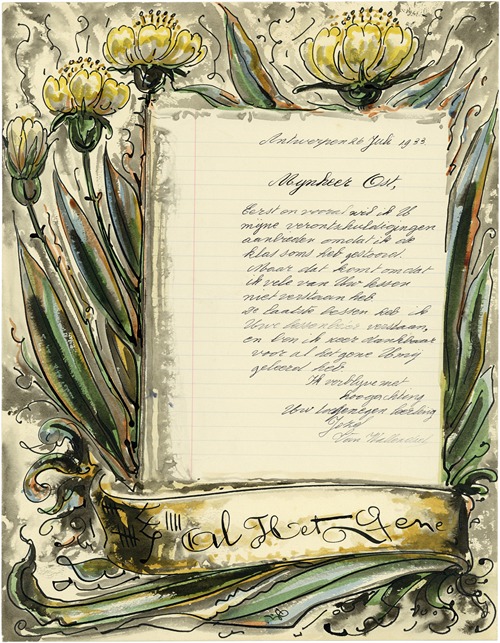 Antwerpen 26 Juli 1933.
Mynheer Ost,
Eerst en vooral wil ik U
mijne verontschuldigingen
aanbieden omdat ik de
klas soms heb gestoord.
Maar dat komt omdat
ik vele van Uw lessen
niet verstaan heb.
De laatste lessen heb ik
verstaan,
en ben ik zeer dankbaar
voor al het gene U my
geleerd heb.
Ik verblijve met
hoogachting
Uw toegenegen leerling
Jozef
Van
al Het Gene